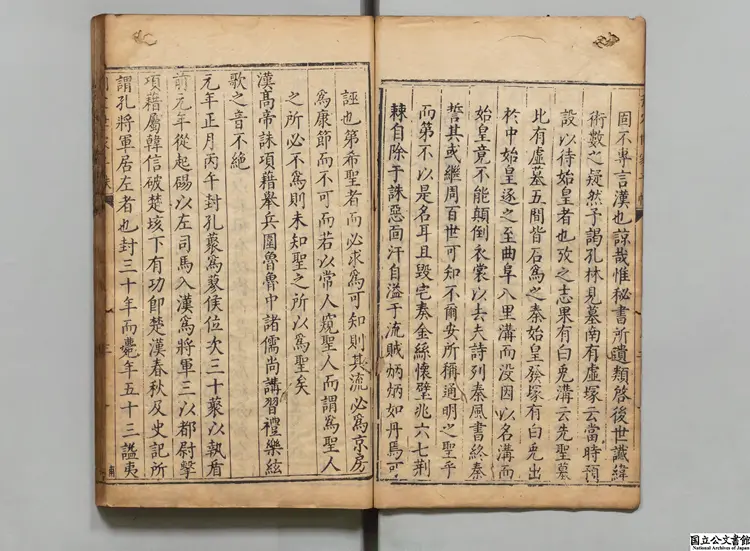 固不專言漢也諒哉惟秘書所遺類啓後世讖緯
術數之疑然予謁孔林見墓南有虛塚云當時預
設以待始皇者也攷之志果有白兎溝云先聖墓
比有虛墓五間皆石爲之秦始皇發塚有白兎出
於中始皇逐之至曲阜八里溝而没因以名溝而
始皇竟不能顛倒衣裳以去夫詩列秦風書終秦
誓其或繼周百世可知不爾安所稱通明之聖乎
而第不以是名耳且毀宅奏金絲懷璧兆六七荆
棘自除于誅惡面汗自溢于流賊炳炳如丹焉可
誣也第希聖者而必求爲可知則其流必爲京房
爲康節而不可而若以常人窺聖人而謂爲聖人
之所必不爲則未知聖之所以爲聖矣
漢高帝誅項藉舉兵圍魯魯中諸儒尚講習禮樂絃
歌之音不絶
元年正月丙午封孔藂爲蓼侯位次三十藂以執盾
前元年從起碭以左司馬入漢爲將軍三以都尉擊
項藉屬韓信破楚垓下有功卽楚漢春秋及史記所
謂孔將軍居左者也封三十年而薨年五十三謚夷
国立公文書館
National Archives of Japan